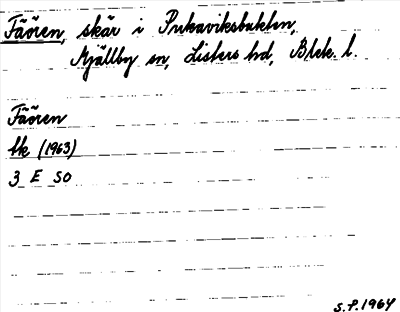 Fäören, skär i Pukaviksbukten,
Mjällby sn, Listers hd, Blek. l.
Fäören
Ek (1963)
3 E SO
S.P. 1964